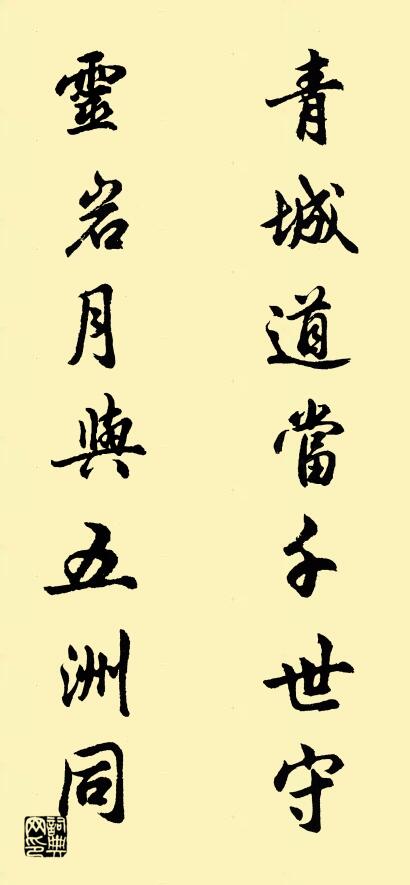 青城道當千世守
靈岩月與五洲同
詞典网印